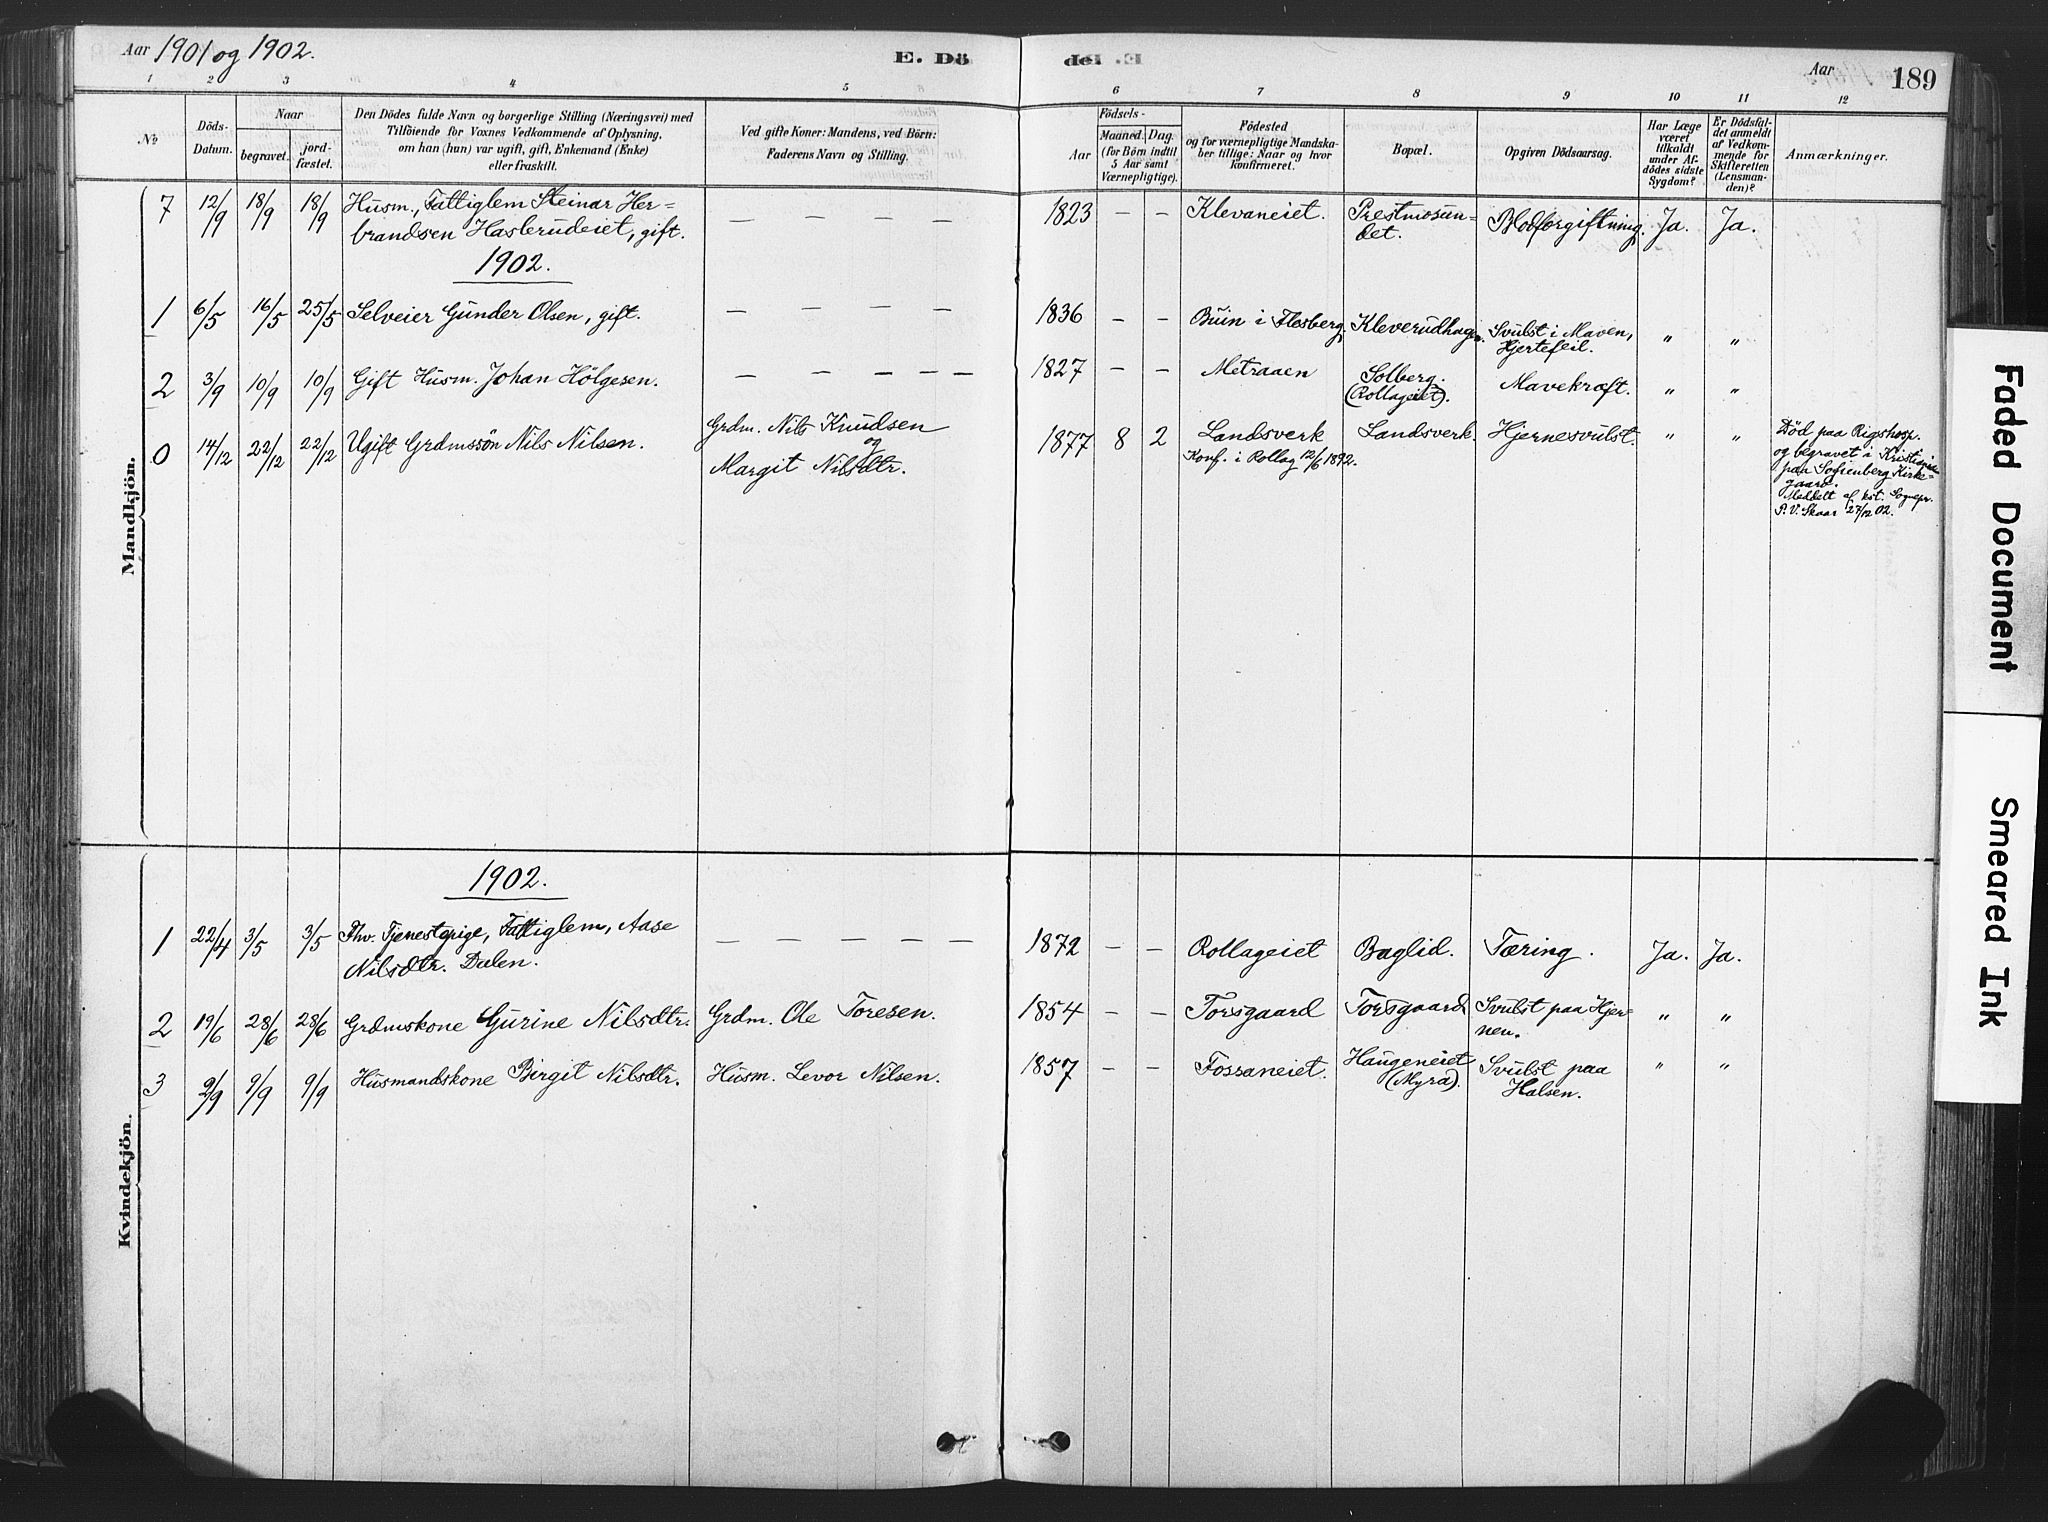 Aar 1901 og 1902.
E. Dö
del E.
Aar
189
1 2 3 4 5 6 7 8 9 10 11 12
№
Döds-
Datum.
Naar
begravet.
jord-
fæstet.
Den Dödes fulde Navn og borgerlige Stilling (Næringsvei) med
Tilföiende for Voxnes Vedkommende af Oplysning,
om han (hun) var ugift, gift, Enkemand (Enke)
eller fraskilt.
Ved gifte Koner: Mandens, ved Börn:
Faderens Navn og Stilling.
Födsels-
Aar
Maaned. Dag.
(for Börn indtil
5 Aar samt
Værnepligtige).
Födested
og for værnepligtige Mandska-
ber tillige: Naar og hvor
konfirmeret.
Bopæl.
Opgiven Dödsaarsag.
Har Læge
været
tilkaldt
under Af-
dödes sidste
Sygdom?
Er Dödsfal-
det anmeldt
af Vedkom-
mende for
Skifteretten
(Lensman-
den)?
Anmærkninger.
Mandkjön.
7 12/9 18/9 18/9 Husm., Fattiglem Steinar Her-
brandsen Haslerudeiet, gift. — — — — 1823 – – Klevaneiet. Prestmosun-
det. Blodforgiftning. Ja. Ja.
1902.
1 6/5 16/5 25/5 Selveier Gunder Olsen, gift. — — — — 1836 – – Buin i Flesberg, Kleverudhagen. Svulst i Maven,
Hjertefeil. " "
2 3/9 10/9 10/9 Gift Husm. Johan Hölgesen. — — — — — 1827 – – Metraaen Solberg.
(Rollageiet). Mavekræft. " "
0 14/12 22/12 22/12 Ugift Grdmssön Nils Nilsen. Grdm. Nils Knudsen
og
Margit Nilsdtr. 1877 8 2 Landsverk
Konf. i Rollag 12/6 1892. Landsverk. Hjernesvulst. " " Död paa Rigshosp.
og begravet i Kristiania
paa Sofienberg Kirke-
gaard.
Meddelt af kst. Sognepr.
P. V. Skaar 27/12 02.
Kvindekjön.
1902.
1 22/4 3/5 3/5 Fhv. Tjenestepige, Fattiglem, Aase
Nilsdtr. Dalen. — — — — — 1872 – – Rollageiet Baglid. Tæring. Ja. Ja.
2 19/6 28/6 28/6 Grdmskone Gurine Nilsdtr. Grdm. Ole Toresen. 1854 – – Torsgaard Torsgaard Svulst paa Hjer-
nen. " "
3 2/9 9/9 9/9 Husmandskone Birgit Nilsdtr. Husm. Levor Nilsen. 1857 – – Fossaneiet. Haugeneiet
(Myra). Svulst paa
Halsen. " "
Faded Document
Smeared Ink